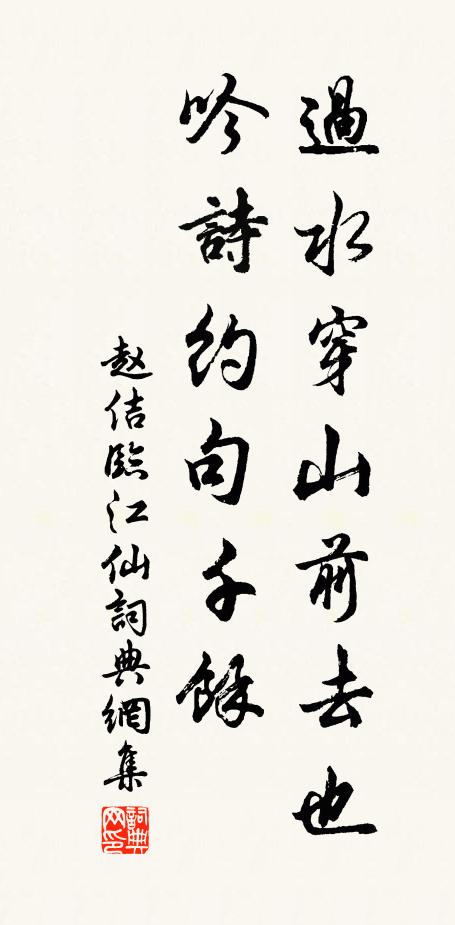 過水穿山前去也
吟詩約句千餘
赵佶臨江仙詞典網集
詞典
网印